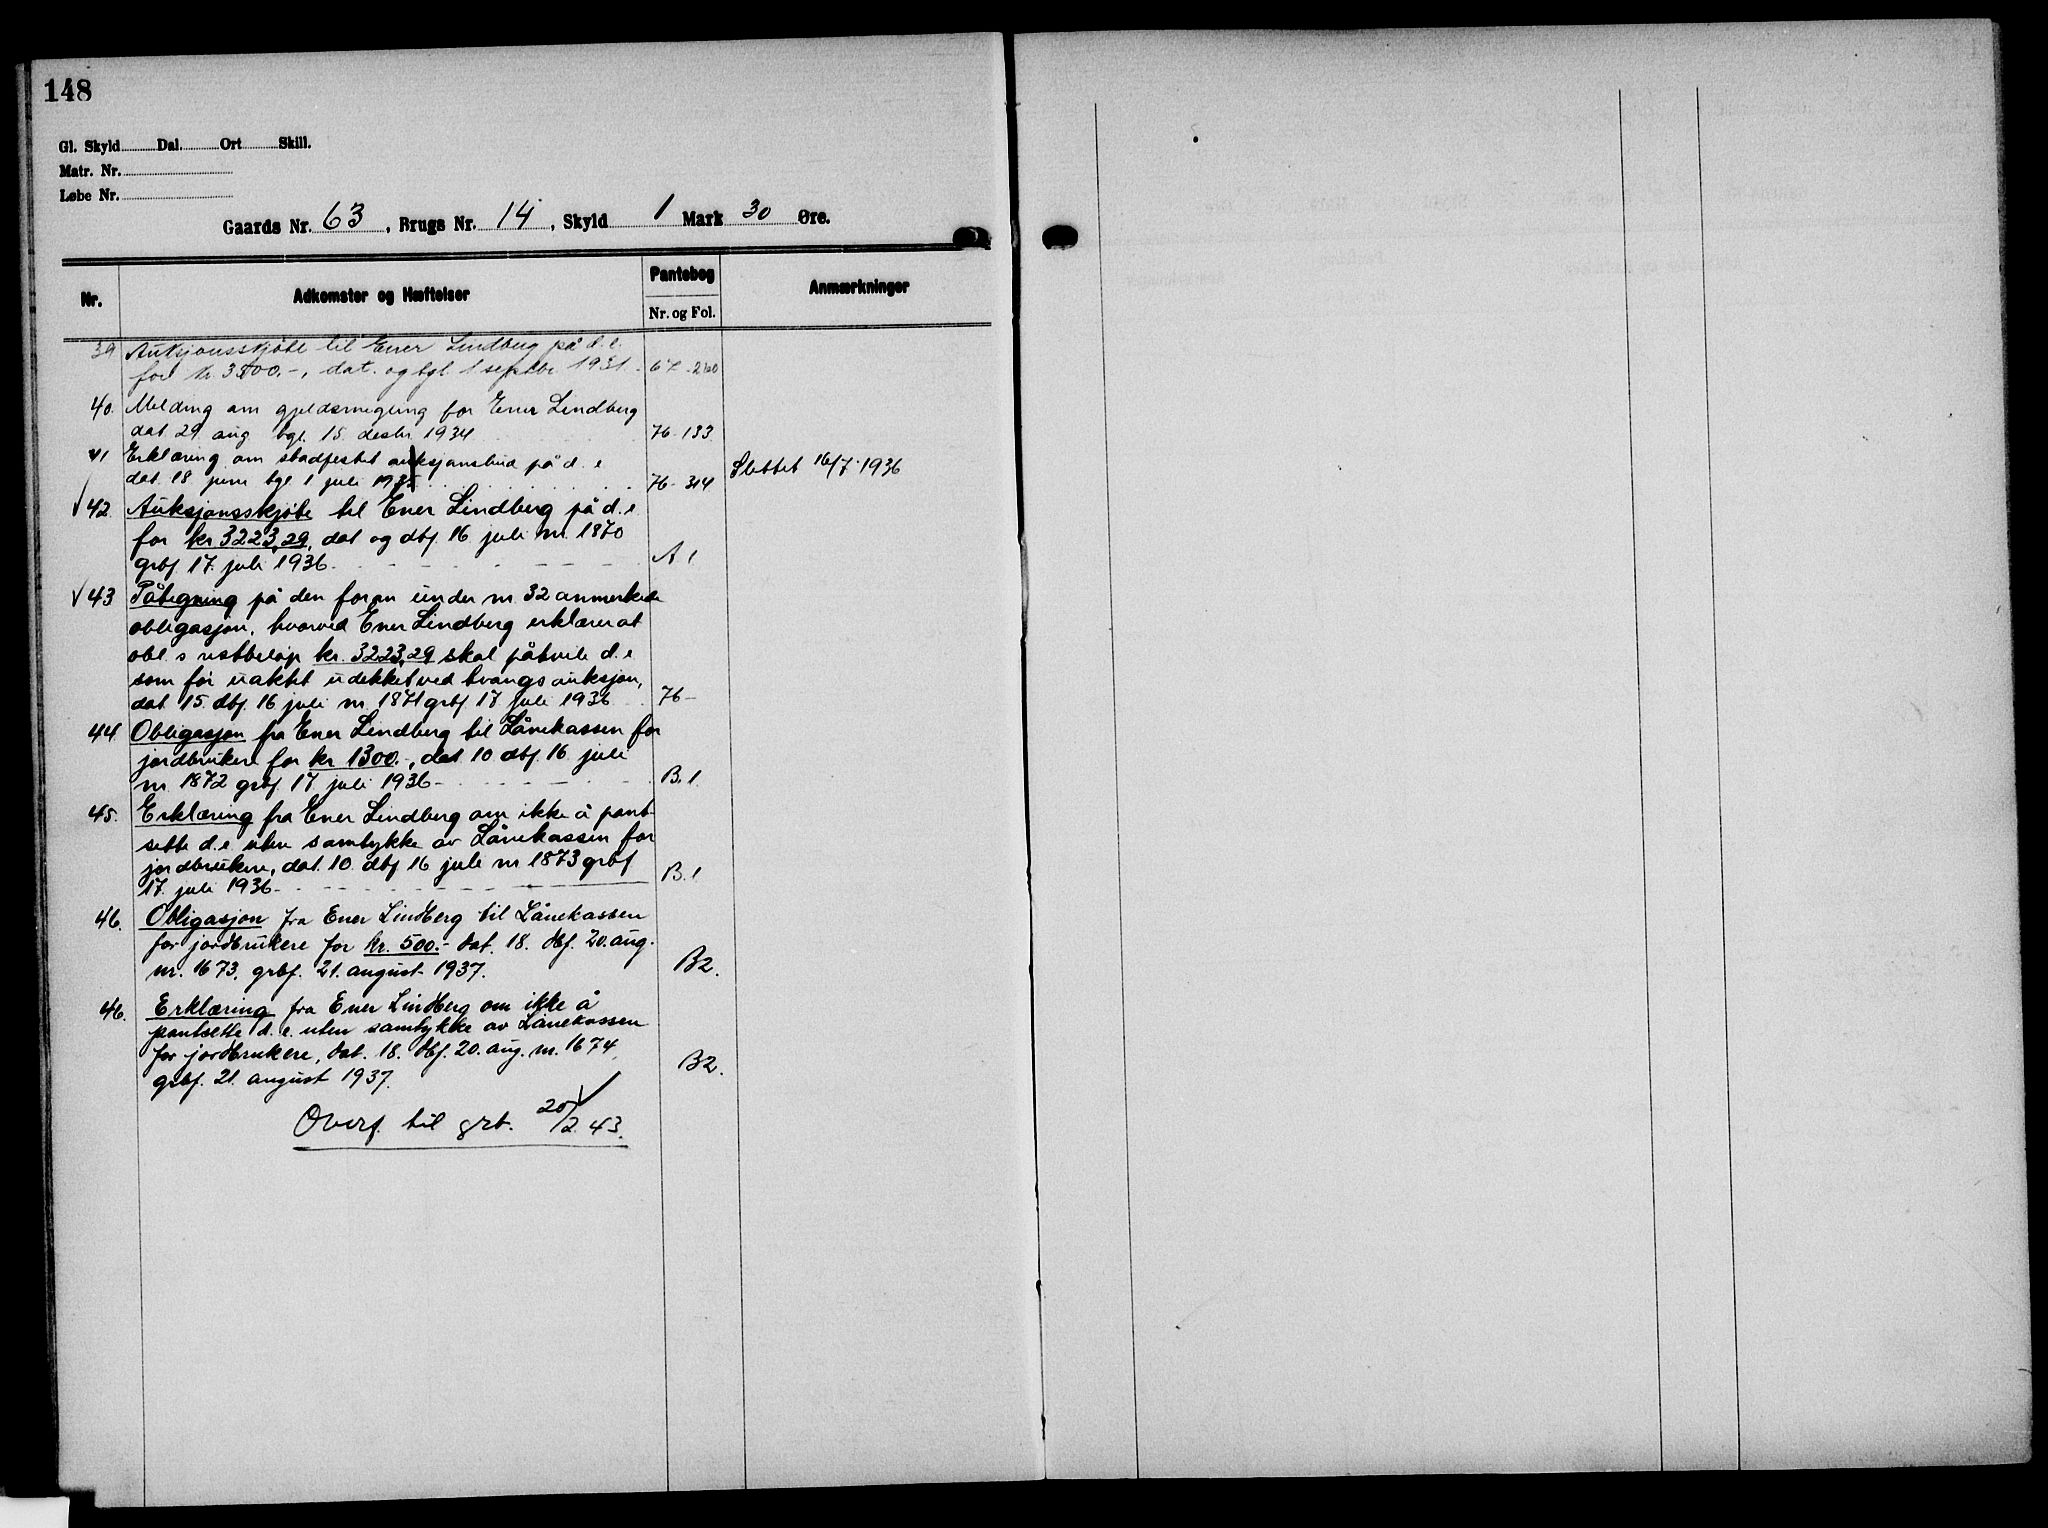 148
Gl. Skyld Dal. Ort Skill.
Matr. Nr.
Løbe Nr.
Gaards Nr. 63, Brugs Nr. 14, Skyld 1 Mark 30 Øre.
Nr. Adkomster og Hæftelser Pantebog Nr. og Fol. Anmærkninger
39 Auksjonsskjøte til Ener Lindberg på d.e.
for kr. 3500.-, dat. og tgl. 1 septbr. 1931. 67-260
40. Melding om gjeldsmegling for Ener Lindberg
dat 29 aug tgl. 15. desbr. 1934 76-133
41 Erklæring om stadfestet auksjonsbud på d.e
dat. 18 juni tgl 1 juli 1935 76-314 Slettet 16/7-1936
42. Auksjonsskjøte til Ener Lindberg på d.e
for kr 3223,29, dat og dbf. 16 juli nr. 1870
grbf. 17. juli 1936. A 1
43 Påtegning på den foran under nr. 32 anmerkede
obligasjon, hvorved Ener Lindberg erklærer at
obl.s restbeløp kr. 3223,29 skal påhvile d.e
som før uaktet udekket ved tvangsauksjon,
dat 15. dbf. 16 juli nr. 1871 grbf 17 juli 1936 76-
44. Obligasjon fra Ener Lindberg til Lånekassen for
jordbrukere for kr 1300.-, dat. 10 dbf. 16 juli
nr. 1872 grbf. 17 juli 1936- B.1.
45. Erklæring fra Ener Lindberg om ikke å pant-
sette d.e uten samtykke av Lånekassen for
jordbrukere, dat. 10. dbf 16 juli nr 1873 grbf
17. juli 1936- B.1
46. Obligasjon fra Ener Lindberg til Lånekassen
for jordbrukere for kr. 500.- dat. 18. dbf. 20. aug.
nr. 1673, grbf. 21. august 1937. B2.
46. Erklæring fra Ener Lindberg om ikke å
pantsette d.e. uten samtykke av Lånekassen
for jordbrukere, dat. 18. dbf. 20. aug. nr. 1674,
grbf. 21. august 1937. B2.
Overf. til grb. 20/2 43.